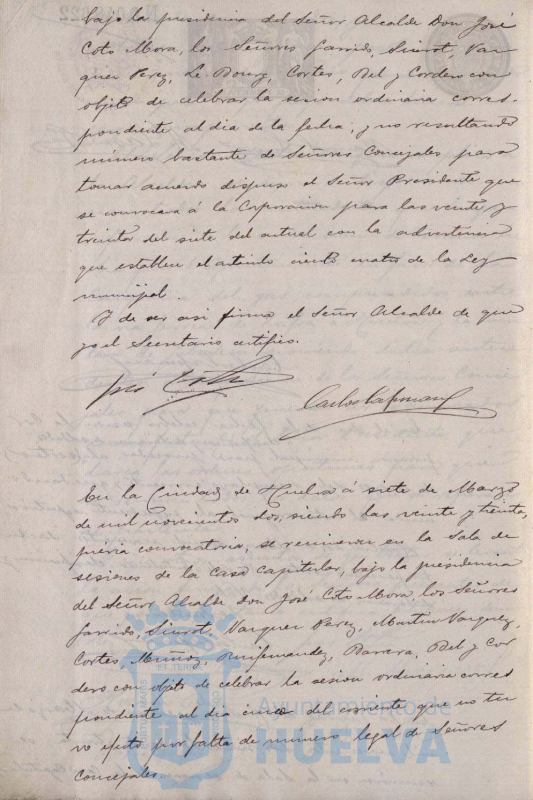 bajo la presidencia del Señor Alcalde Don José
Coto Mora, los Señores Garrido, Siurot, Vaz-
quez Perez, Le-Bourg, Cortes, Bel y Cordero con
objeto de celebrar la sesion ordinaria corres-
pondiente al dia de la fecha; y no resultando
número bastante de Señores Concejales para
tomar acuerdo dispuso el Señor Presidente que
se convocara á la Corporacion para las veinte y
treinta del siete del actual con la advertencia
que establece el articulo ciento cuatro de la Ley
municipal.
Y de ser asi firma el Señor Alcalde de que
yo el Secretario certifico.
José Coto
Carlos
En la Ciudad de Huelva á siete de Marzo
de mil novecientos dos, siendo las veinte y treinta,
prévia convocatoria, se reunieron en la Sala de
sesiones de la Casa Capitular, bajo la presidencia
del Señor Alcalde don José Coto Mora, los Señores
Garrido, Siurot, Vazquez Perez, Martin Vazquez,
Cortes, Muñoz, Ruifernandez, Barrera, Bel y Cor
dero con objeto de celebrar la sesion ordinaria corres
pondiente al dia cinco del corriente que no tu
vo efecto por falta de numero legal de Señores
Concejales.
Ayuntamiento de
HUELVA